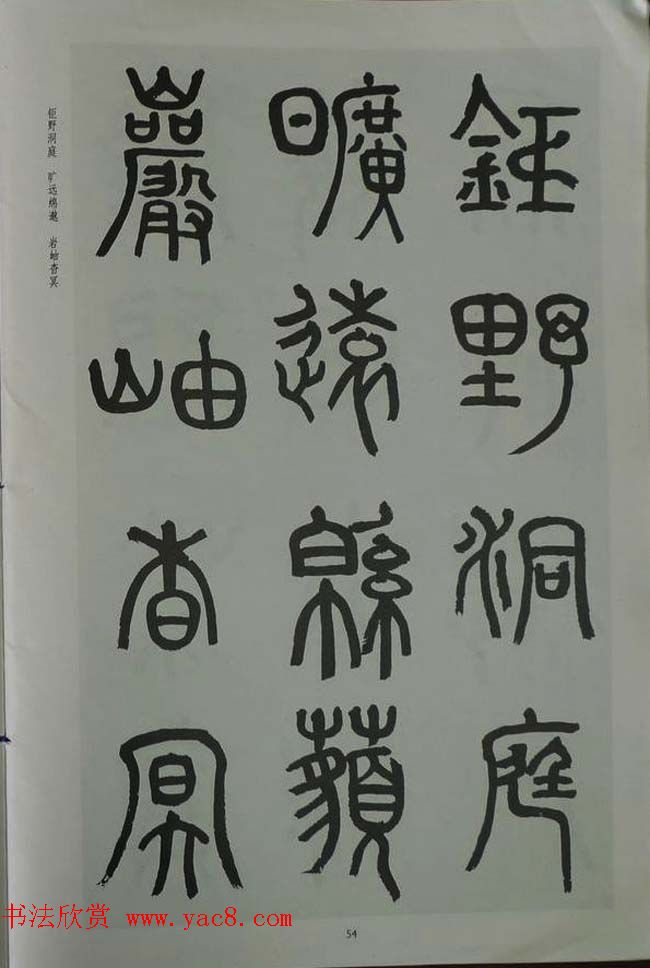 鉅野洞庭
曠遠緜藐
巖岫杳冥
钜野洞庭 旷远绵邈 岩岫杳冥
书法欣赏 www.yac8.com
54